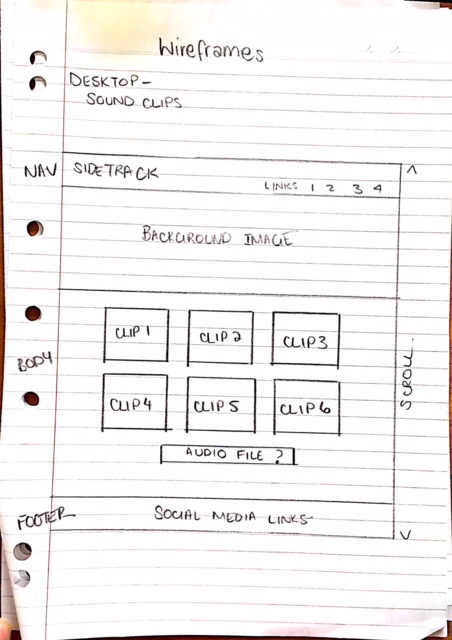 Wireframes
DESKTOP -
SOUND CLIPS
NAV SIDETRACK
LINKS 1 2 3 4
BACKGROUND IMAGE
CLIP 1 CLIP 2 CLIP 3
BODY
SCROLL
CLIP 4 CLIP 5 CLIP 6
AUDIO FILE ?
FOOTER SOCIAL MEDIA LINKS